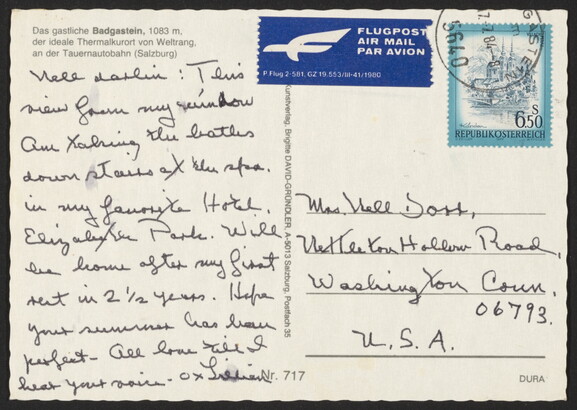 Das gastliche Badgastein, 1083 m,
der ideale Thermalkurort von Weltrang,
an der Tauernautobahn (Salzburg)
Nell darlin: This
view from my window
Am taking the baths
down stairs at the spa.
in my favorite Hotel.
Elizabethe Park. Will
be home after my first
rest in 2 1/2 years. Hope
your summer has been
perfect- All love till I
hear your voice - ox Lillian
FLUGPOST
AIR MAIL
PAR AVION
P. Flug 2-581, GZ 19.553/III-41/1980
5640
S
6.50
REPUBLIK ÖSTERREICH
Kunstverlag, Brigitte DAVID-GRÜNDLER, A-5013 Salzburg, Postfach 35
Mrs. Nell Dorr,
Nettleton Hollow Road,
Washington Conn.
06793.
U.S.A.
Nr. 717
DURA